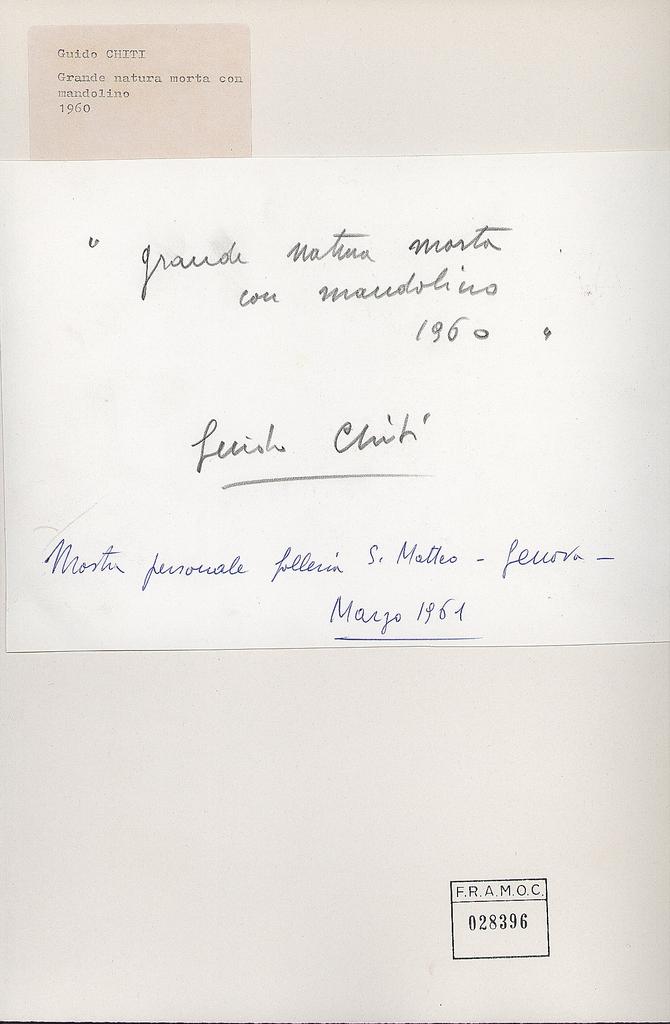 Guido CHITI
Grande natura morta con
mandolino
1960
" grande natura morta
con mandolino
1960 "
Guido Chiti
Mostra personale Galleria S. Matteo - Genova -
Marzo 1961
F.R.A.M.O.C.
028396